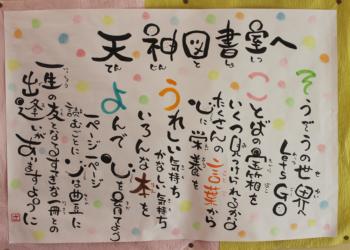 天神図書室へ
そうぞうの世界へ
Let's GO
ことばの宝箱を
いくつ見つけられるかな
たくさんの言葉から
心に栄養を
うれしい気持ち
かなしい気持ち
いろんな本を
よんで心を育てよう
一ページ一ページ
読むごとに心は豊に
一生の友となるすてきな一冊との
出逢いがありますように